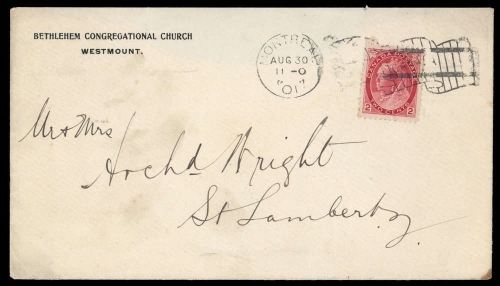 BETHLEHEM CONGREGATIONAL CHURCH
WESTMOUNT.
MONTREAL
AUG 30
11-0
01
2 2
Mr & Mrs
Archd. Wright
St Lambert